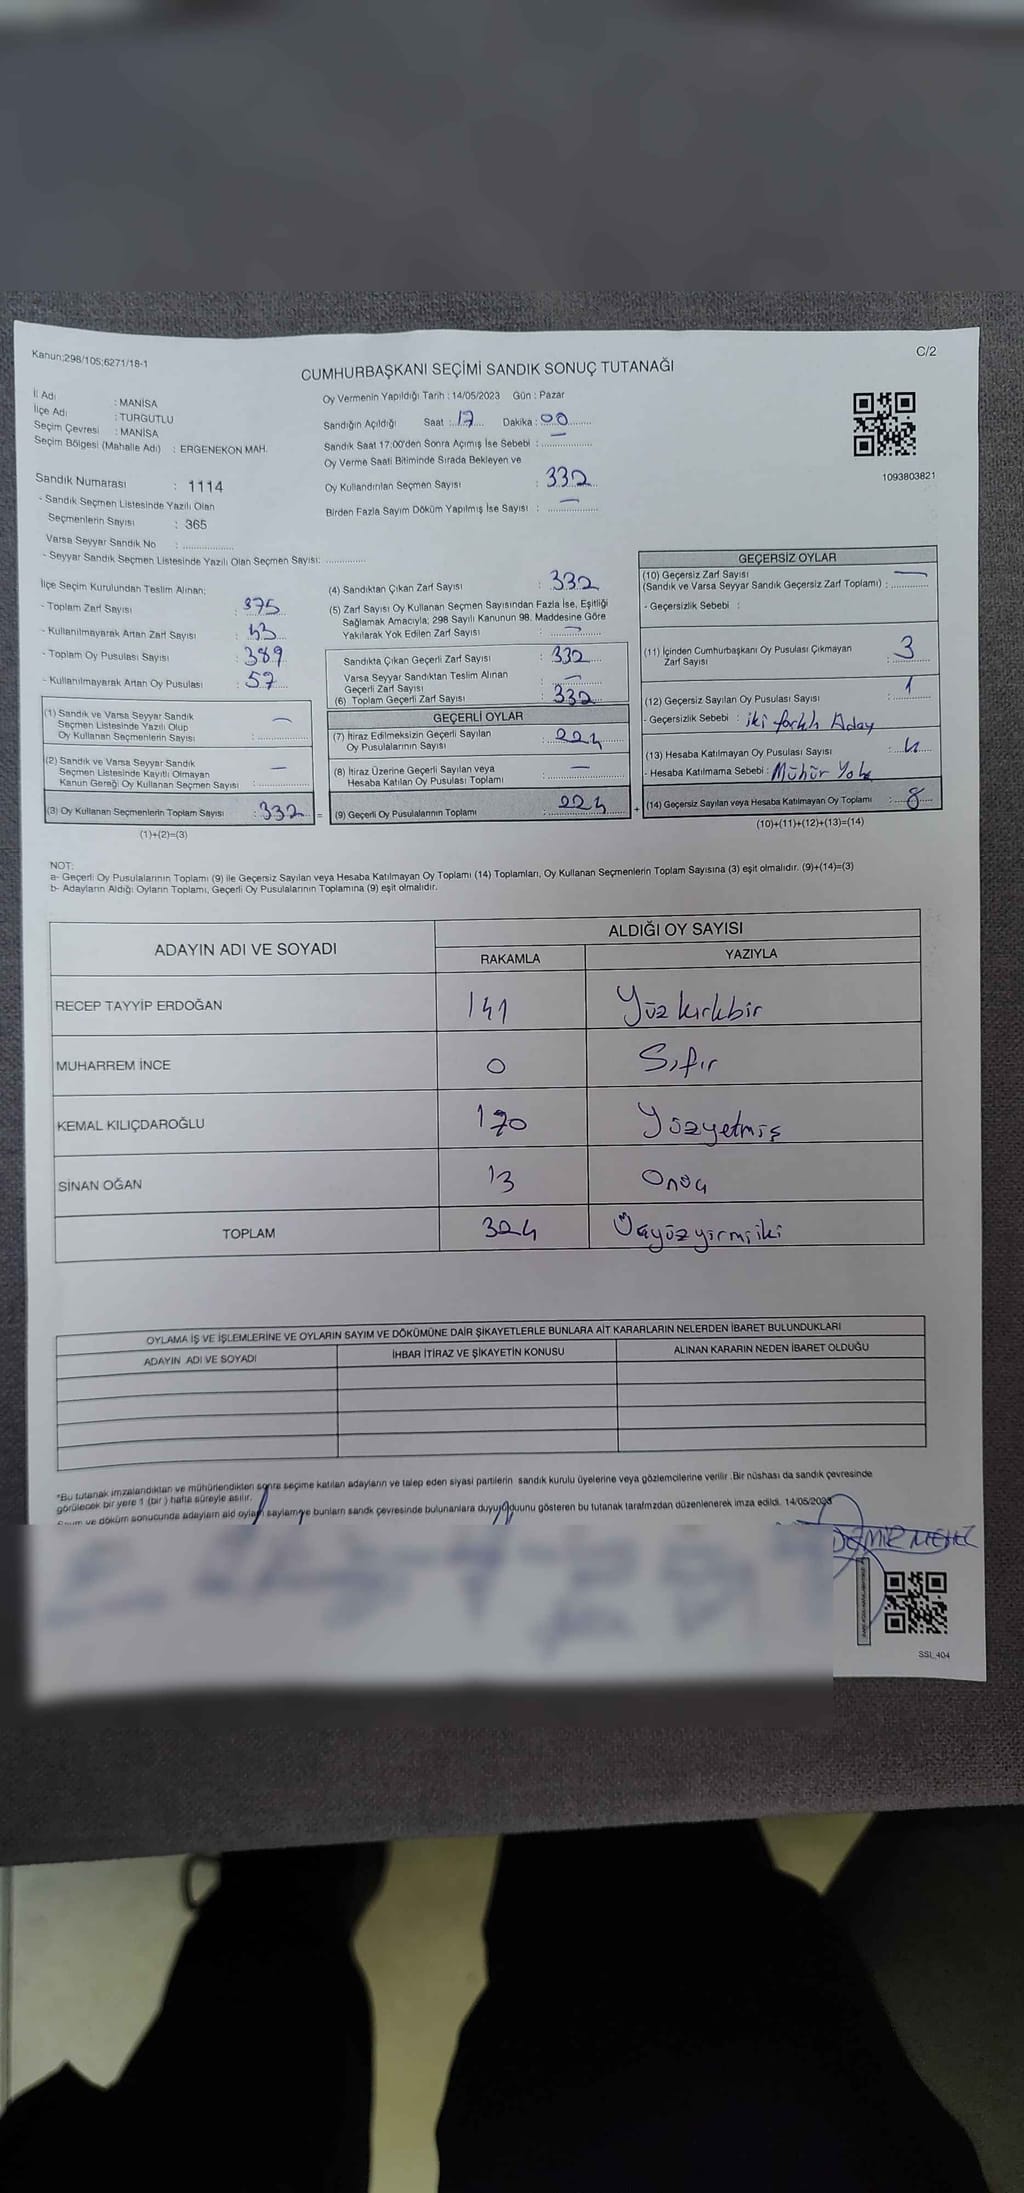 Kanun;298/105;6271/18-1
C/2
CUMHURBAŞKANI SEÇİMİ SANDIK SONUÇ TUTANAĞI
İl Adı : MANİSA
İlçe Adı : TURGUTLU
Seçim Çevresi : MANİSA
Seçim Bölgesi (Mahalle Adı) : ERGENEKON MAH.
Sandık Numarası : 1114
- Sandık Seçmen Listesinde Yazılı Olan
Seçmenlerin Sayısı : 365
Varsa Seyyar Sandık No : ................
- Seyyar Sandık Seçmen Listesinde Yazılı Olan Seçmen Sayısı: ............
Oy Vermenin Yapıldığı Tarih : 14/05/2023 Gün : Pazar
Sandığın Açıldığı Saat : 17 Dakika : 00
Sandık Saat 17:00'den Sonra Açımış İse Sebebi : —
Oy Verme Saati Bitiminde Sırada Bekleyen ve
Oy Kullandırılan Seçmen Sayısı : 332
Birden Fazla Sayım Döküm Yapılmış İse Sayısı : —
1093803821
İlçe Seçim Kurulundan Teslim Alınan;
- Toplam Zarf Sayısı : 375
- Kullanılmayarak Artan Zarf Sayısı : 43
- Toplam Oy Pusulası Sayısı : 389
- Kullanılmayarak Artan Oy Pusulası : 57
(1) Sandık ve Varsa Seyyar Sandık
Seçmen Listesinde Yazılı Olup
Oy Kullanan Seçmenlerin Sayısı : —
(2) Sandık ve Varsa Seyyar Sandık
Seçmen Listesinde Kayıtlı Olmayan
Kanun Gereği Oy Kullanan Seçmen Sayısı : —
(3) Oy Kullanan Seçmenlerin Toplam Sayısı : 332 =
(1)+(2)=(3)
(4) Sandıktan Çıkan Zarf Sayısı : 332
(5) Zarf Sayısı Oy Kullanan Seçmen Sayısından Fazla İse, Eşitliği
Sağlamak Amacıyla; 298 Sayılı Kanunun 98. Maddesine Göre
Yakılarak Yok Edilen Zarf Sayısı : —
Sandıkta Çıkan Geçerli Zarf Sayısı : 332
Varsa Seyyar Sandıktan Teslim Alınan
Geçerli Zarf Sayısı : —
(6) Toplam Geçerli Zarf Sayısı : 332
GEÇERLİ OYLAR
(7) İtiraz Edilmeksizin Geçerli Sayılan
Oy Pusulalarının Sayısı : 224
(8) İtiraz Üzerine Geçerli Sayılan veya
Hesaba Katılan Oy Pusulası Toplamı : —
(9) Geçerli Oy Pusulalarının Toplamı : 224 +
GEÇERSİZ OYLAR
(10) Geçersiz Zarf Sayısı
(Sandık ve Varsa Seyyar Sandık Geçersiz Zarf Toplamı) : —
- Geçersizlik Sebebi :
(11) İçinden Cumhurbaşkanı Oy Pusulası Çıkmayan
Zarf Sayısı : 3
(12) Geçersiz Sayılan Oy Pusulası Sayısı : 1
- Geçersizlik Sebebi : iki farklı Aday
(13) Hesaba Katılmayan Oy Pusulası Sayısı : 4
- Hesaba Katılmama Sebebi : Mühür Yok
(14) Geçersiz Sayılan veya Hesaba Katılmayan Oy Toplamı : 8
(10)+(11)+(12)+(13)=(14)
NOT:
a- Geçerli Oy Pusulalarının Toplamı (9) ile Geçersiz Sayılan veya Hesaba Katılmayan Oy Toplamı (14) Toplamları, Oy Kullanan Seçmenlerin Toplam Sayısına (3) eşit olmalıdır. (9)+(14)=(3)
b- Adayların Aldığı Oyların Toplamı, Geçerli Oy Pusulalarının Toplamına (9) eşit olmalıdır.
ADAYIN ADI VE SOYADI ALDIĞI OY SAYISI
RAKAMLA YAZIYLA
RECEP TAYYİP ERDOĞAN 141 Yüz kırkbir
MUHARREM İNCE 0 Sıfır
KEMAL KILIÇDAROĞLU 170 Yüzyetmiş
SİNAN OĞAN 13 Onüç
TOPLAM 324 Üçyüzyirmiiki
OYLAMA İŞ VE İŞLEMLERİNE VE OYLARIN SAYIM VE DÖKÜMÜNE DAİR ŞİKAYETLERLE BUNLARA AİT KARARLARIN NELERDEN İBARET BULUNDUKLARI
ADAYIN ADI VE SOYADI İHBAR İTİRAZ VE ŞİKAYETİN KONUSU ALINAN KARARIN NEDEN İBARET OLDUĞU
"Bu tutanak imzalandıktan ve mühürlendikten sonra seçime katılan adayların ve talep eden siyasi partilerin sandık kurulu üyelerine veya gözlemcilerine verilir .Bir nüshası da sandık çevresinde
görülecek bir yere 1 (bir ) hafta süreyle asılır.
ve döküm sonucunda adayların ald oyların bunların sandk çevresinde bulunanlara gösteren bu tutanak tarafmzdan düzenlenerek imza edildi. 14/05/2023
SSI_404